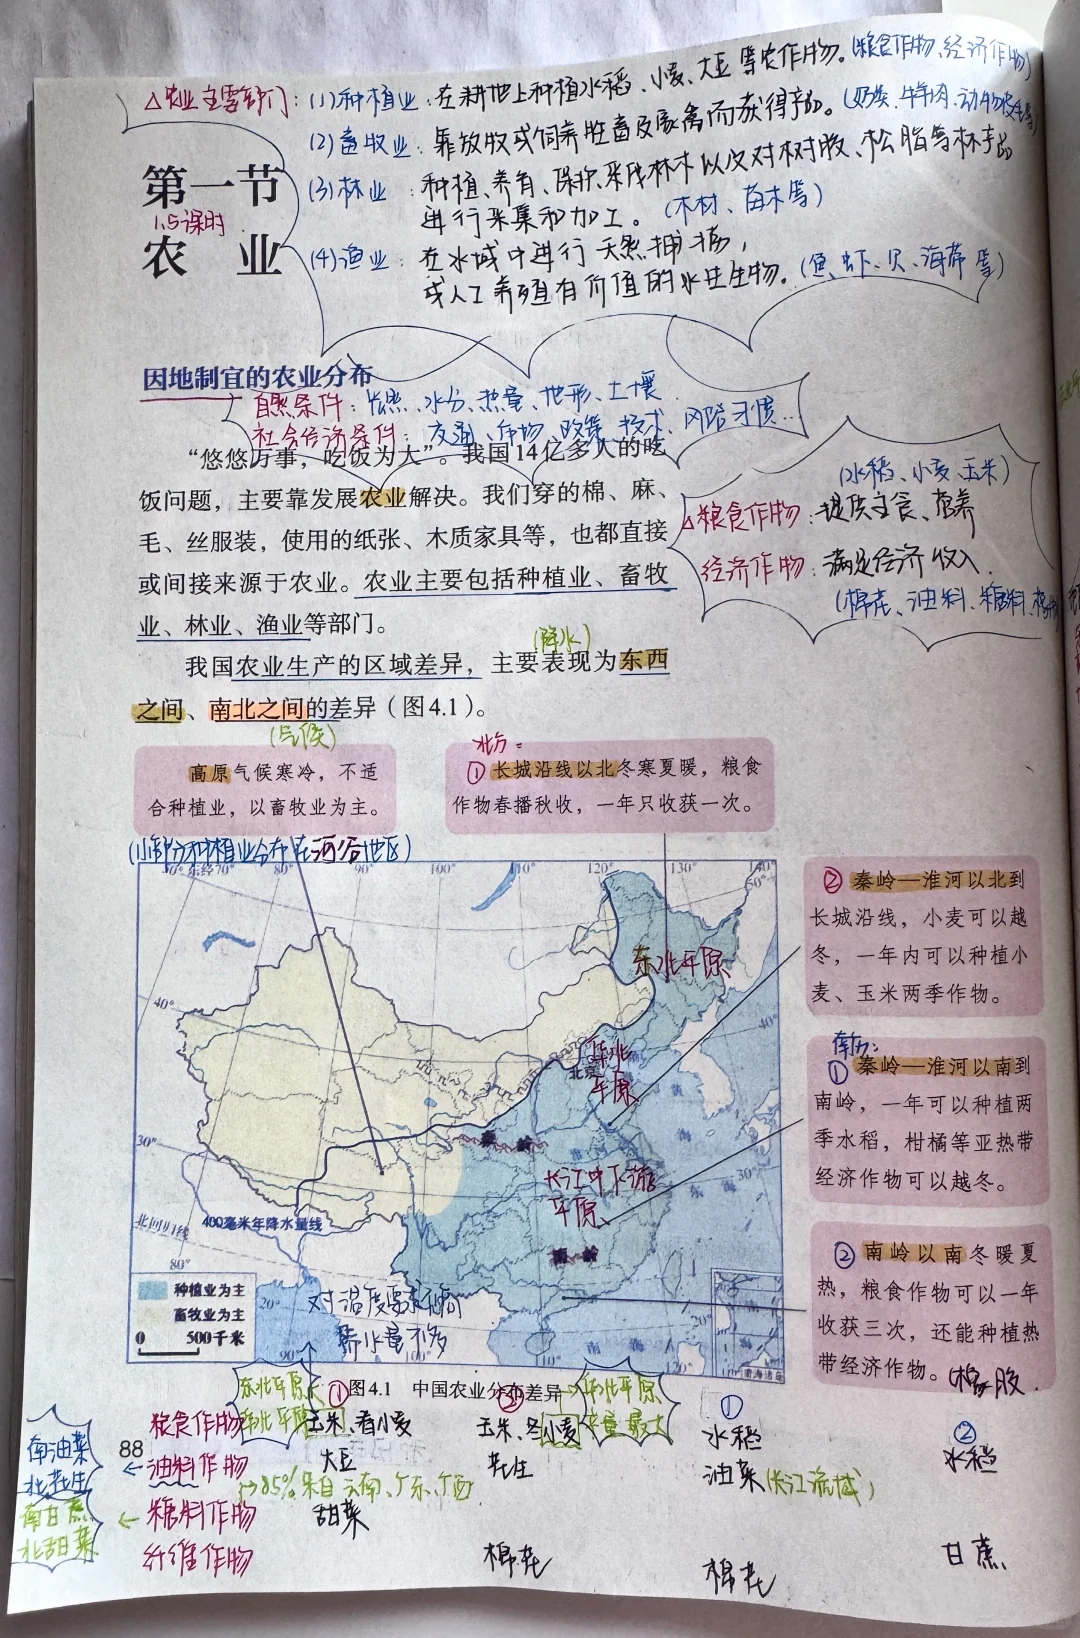 △农业主要部门：(1)种植业：在耕地上种植水稻、小麦、大豆等农作物。(粮食作物、经济作物)
(2)畜牧业：靠放牧或饲养牲畜及家禽而获得产品。(奶类、牛羊肉、动物皮毛等)
(3)林业：种植、养育、保护、采伐林木以及对树胶、松脂等林产品
进行采集和加工。(木材、苗木等)
(4)渔业：在水域中进行天然捕捞，
或人工养殖有价值的水生生物。(鱼、虾、贝、海带等)
第一节
1.5课时
农 业
因地制宜的农业分布
自然条件：光照、水分、热量、地形、土壤
社会经济条件：交通、市场、政策、技术、风俗习惯...
“悠悠万事，吃饭为大”。我国14亿多人的吃
饭问题，主要靠发展农业解决。我们穿的棉、麻、
毛、丝服装，使用的纸张、木质家具等，也都直接
或间接来源于农业。农业主要包括种植业、畜牧
业、林业、渔业等部门。
(水稻、小麦、玉米)
△粮食作物：提供主食、营养
经济作物：满足经济收入
(棉花、油料、糖料
(降水)
我国农业生产的区域差异，主要表现为东西
之间、南北之间的差异（图4.1）。
(气候)
高原气候寒冷，不适
合种植业，以畜牧业为主。
(小部分种植业分布在河谷地区)
北方：
①长城沿线以北冬寒夏暖，粮食
作物春播秋收，一年只收获一次。
②秦岭—淮河以北到
长城沿线，小麦可以越
冬，一年内可以种植小
麦、玉米两季作物。
南方：
①秦岭—淮河以南到
南岭，一年可以种植两
季水稻，柑橘等亚热带
经济作物可以越冬。
②南岭以南冬暖夏
热，粮食作物可以一年
收获三次，还能种植热
带经济作物。(橡胶
东经70° 80° 90° 100° 110° 120° 130° 140°
50°
东北平原
40°
40°
华北
北京
平原
黄
海
秦 岭
30°
长江中下游
平原
30°
东 海
北回归线
400毫米年降水量线
南 岭
80°
种植业为主
畜牧业为主
0 500千米
20°
对温度要求偏高
需水量不多
90° 100° 110° 120°
20°
南 海
南海诸岛
图4.1 中国农业分布差异
88
东北平原
华北平原
华北平原
产量最大
① ② ① ②
粮食作物 玉米、春小麦 玉米、冬小麦 水稻 水稻
南油菜
北花生
←油料作物 大豆 花生 油菜(长江流域)
→85%来自云南、广东、广西
南甘蔗
北甜菜
←糖料作物 甜菜 甘蔗
纤维作物 棉花 棉花